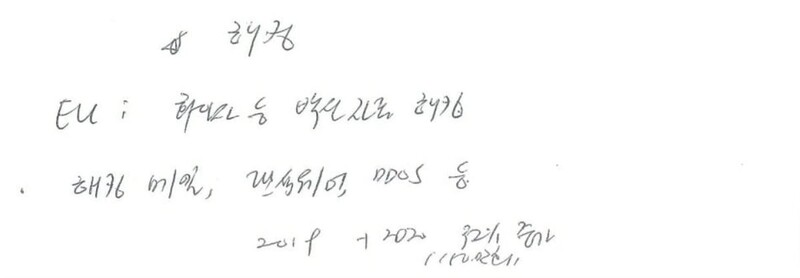 해킹
EU : 화이자 등 백신자료 해킹
· 해킹 메일, 랜섬웨어, DDOS 등
2019 → 2020 32% 증가